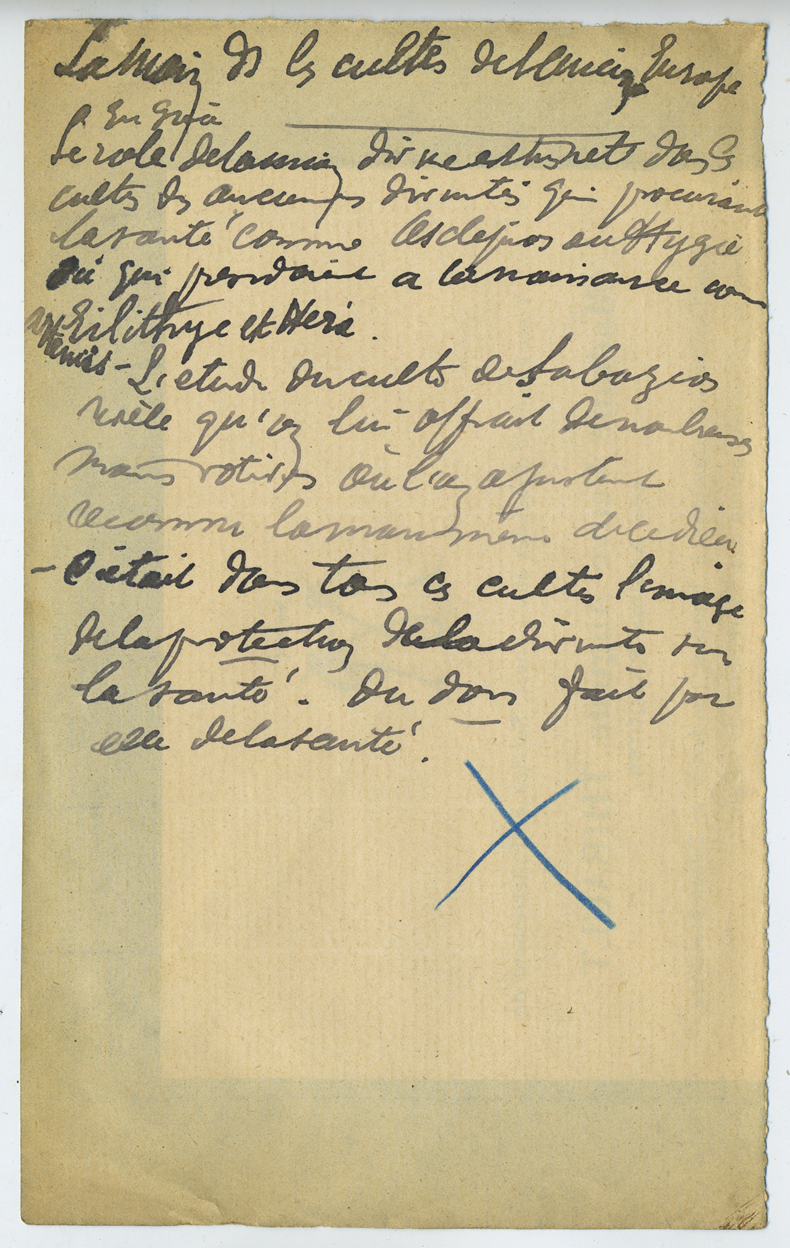 La main ds les cultes de l'ancien Europe
En Grèce
Le role de la main divine est net dans les
cultes des anciennes divinités qui procuraient
la santé comme Asclepios ou Hygie
ou qui presidaient a la naissance comme
Eilithye et Hera.
Artémis - L'etude du culte de Sabazios
révèle qu'on lui offrait de nombreuses
mains votives où l'on a justement
reconnu la main même de ce dieu
- C'était dans tous ces cultes l'image
de la protection de la divinité sur
la santé. Du don fait par
elle de la santé.